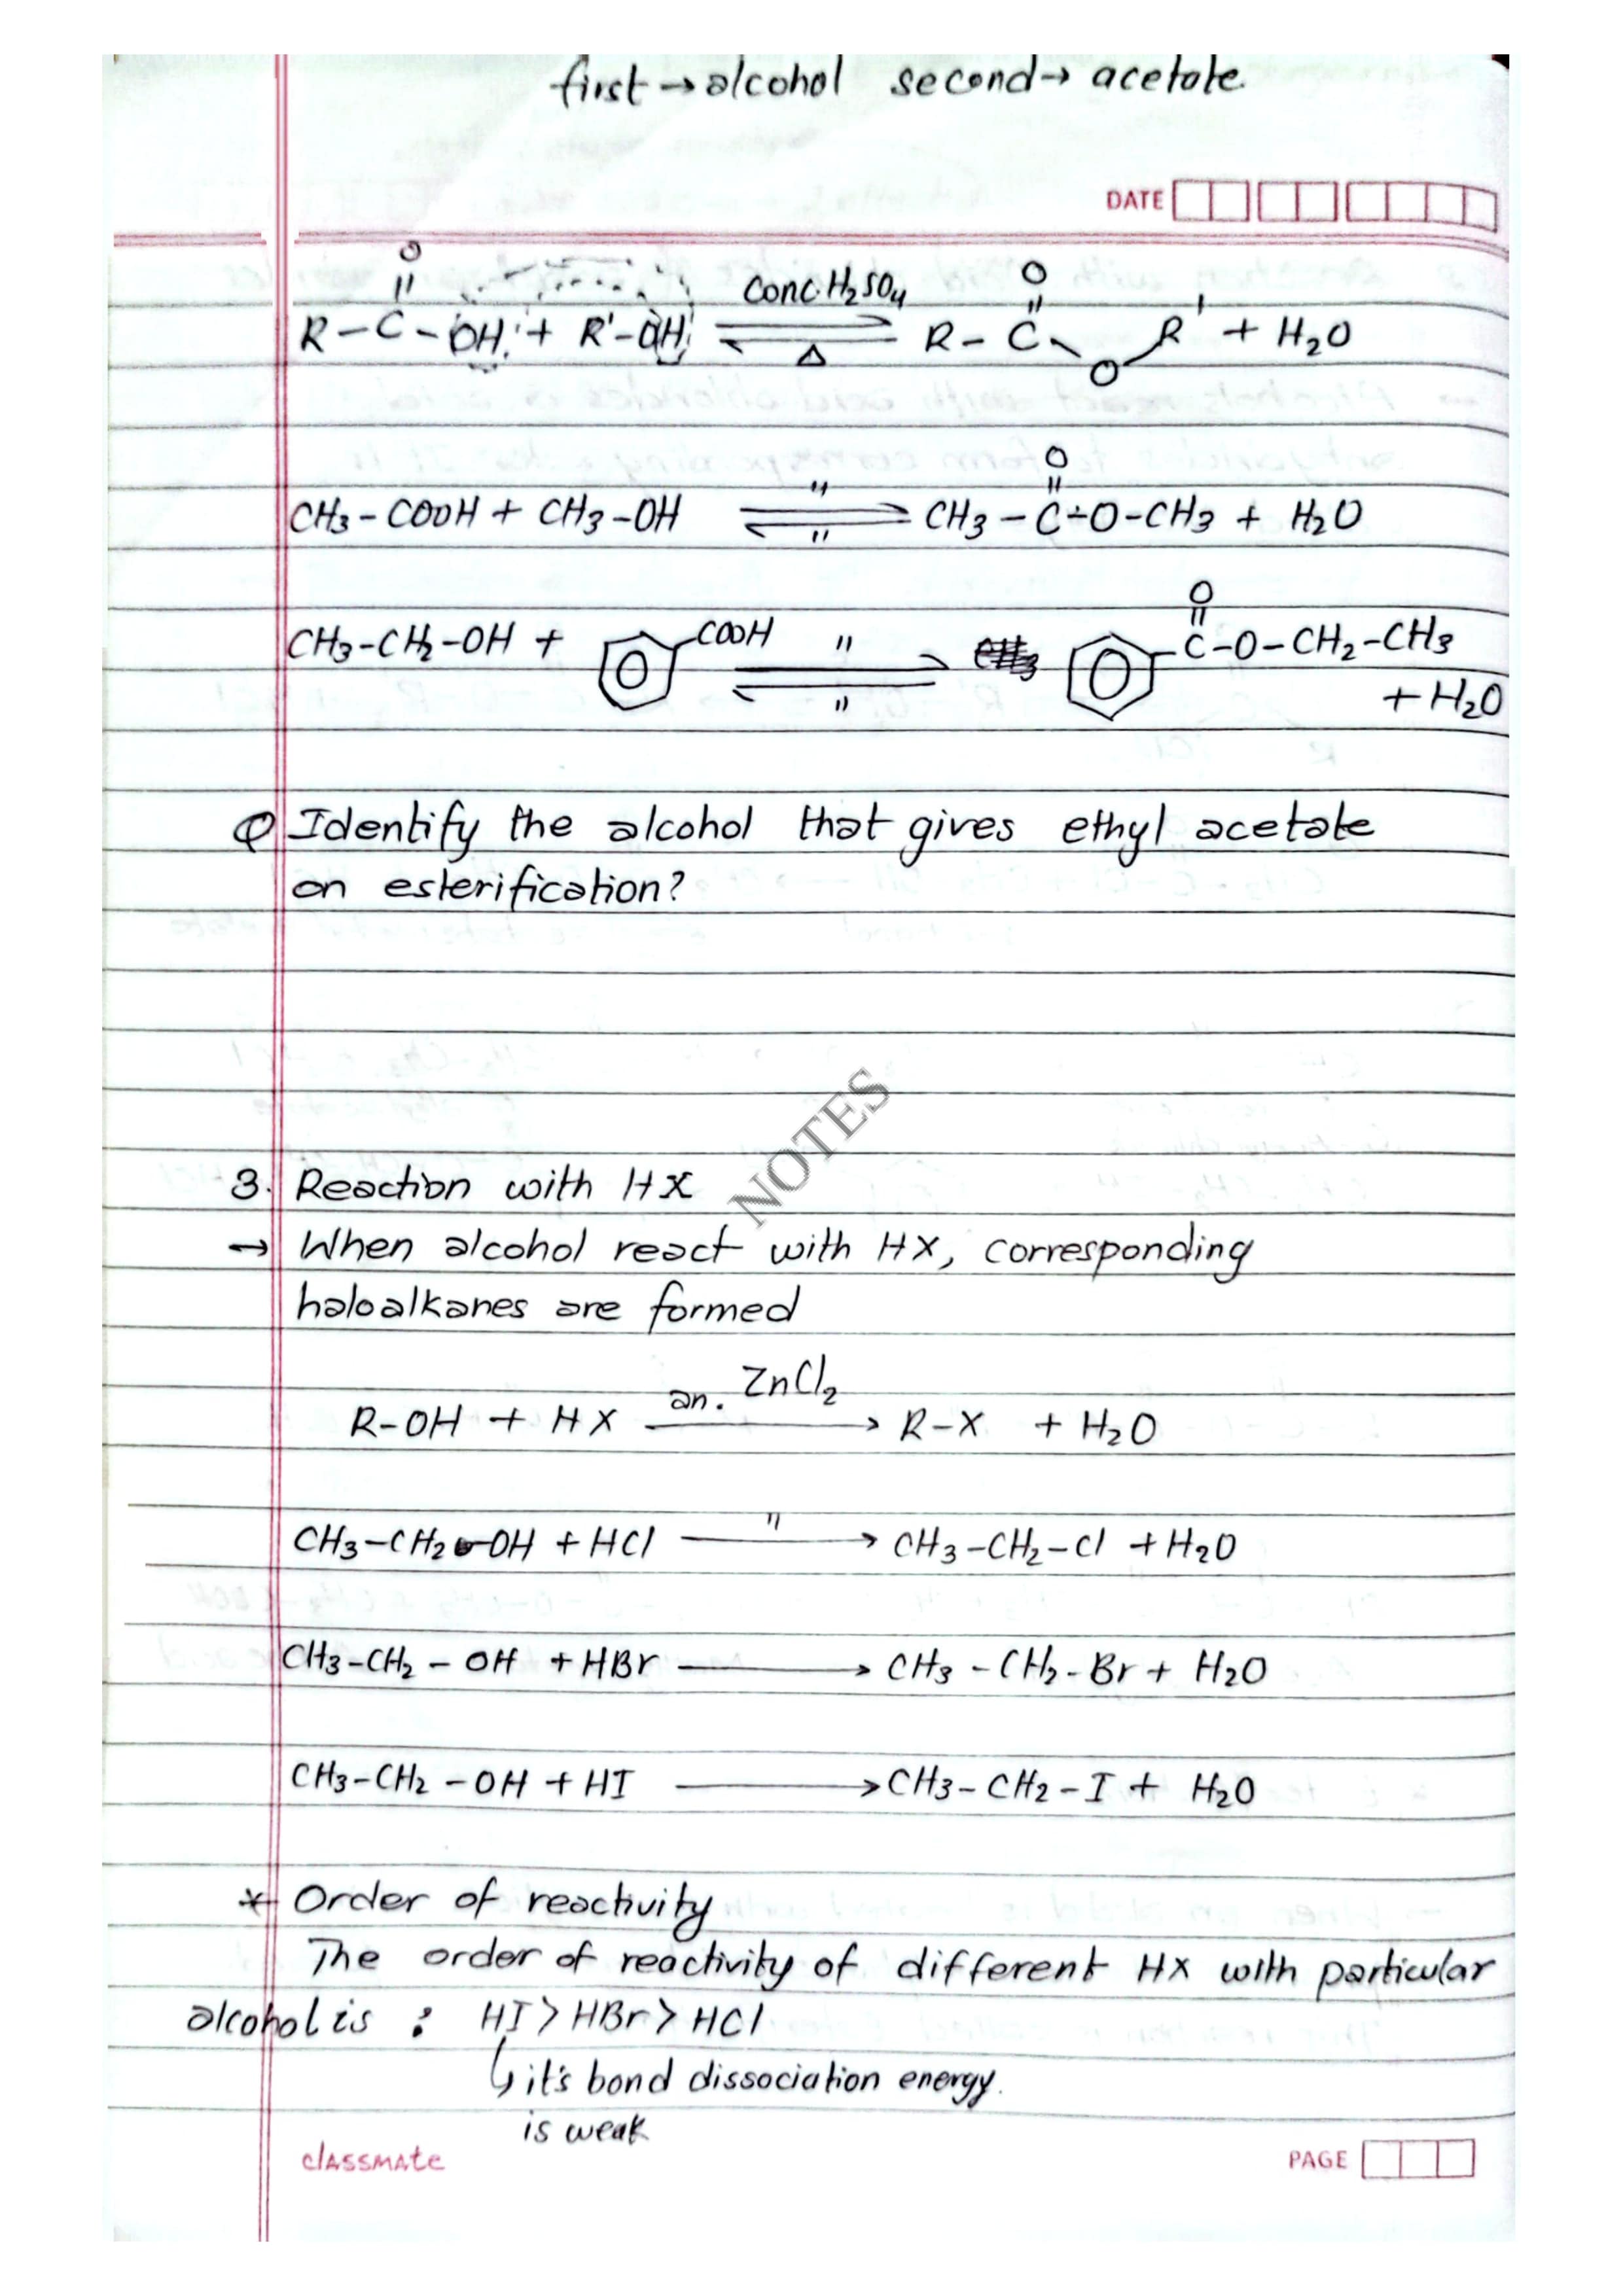 first → alcohol second → acetate.
DATE
O
R – C – OH + R' – OH ⇌ Conc. H₂SO₄ Δ R – C – O – R' + H₂O
O
O
CH₃ – COOH + CH₃ – OH ⇌ " " CH₃ – C – O – CH₃ + H₂O
O
CH₃–CH₂–OH + COOH ⇌ " " C–O–CH₂–CH₃
+ H₂O
Q Identify the alcohol that gives ethyl acetate
on esterification?
NOTES
3. Reaction with HX
→ When alcohol react with HX, corresponding
haloalkanes are formed
an. ZnCl₂
R–OH + HX → R–X + H₂O
CH₃–CH₂–OH + HCl " → CH₃–CH₂–Cl + H₂O
CH₃–CH₂–OH + HBr → CH₃–CH₂–Br + H₂O
CH₃–CH₂–OH + HI → CH₃–CH₂–I + H₂O
* Order of reactivity
The order of reactivity of different HX with particular
alcohol is : HI > HBr > HCl
↳ it's bond dissociation energy.
is weak
classmate
PAGE